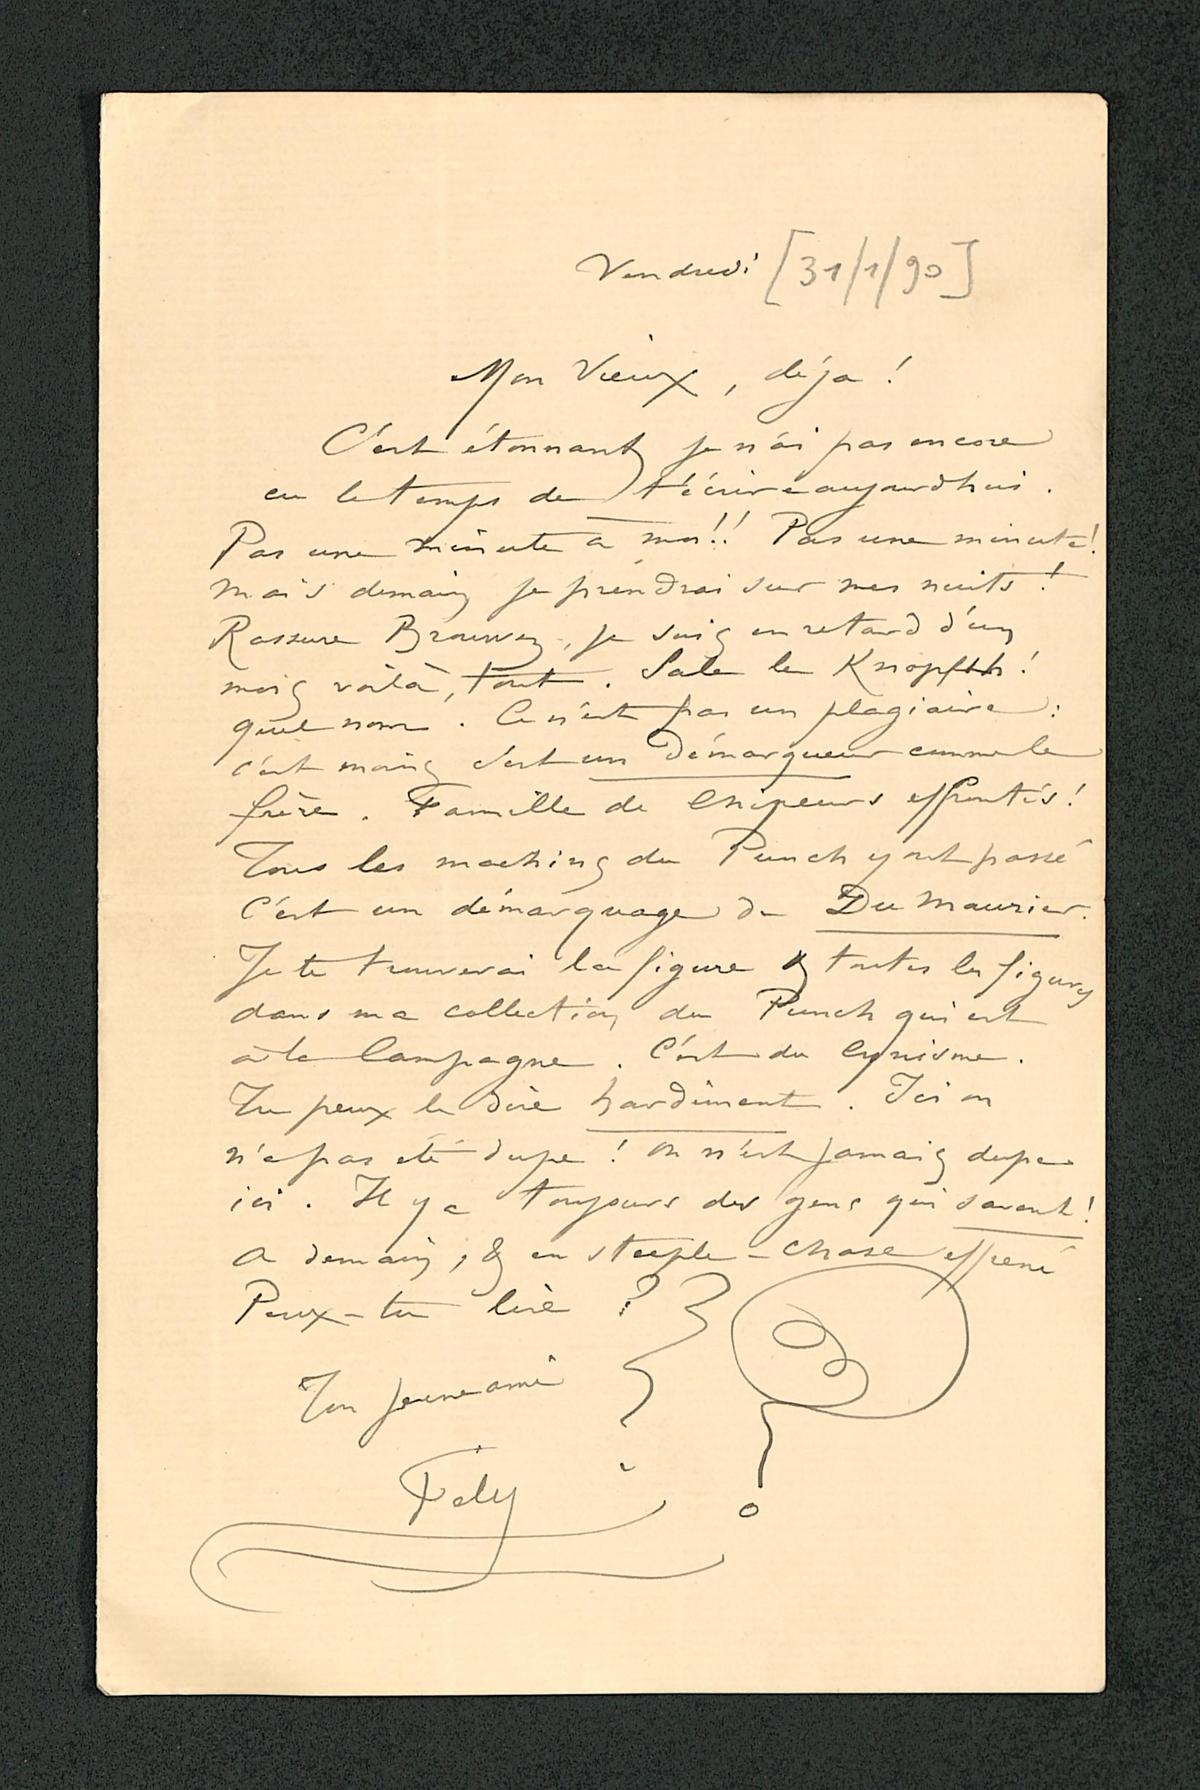 Vendredi [31/1/90]
Mon Vieux, déja !
C'est étonnant je n'ai pas encore
eu le temps de t'écrire aujourd'hui.
Pas une minute a moi !! Pas une minute !
mais demain je prendrai sur mes nuits !
Rassure Brouwez, je suis en retard d'un
mois voilà, tout. Sale le Knopffh !
quel nom. Ce n'est pas un plagiaire :
c'est moins c'est un Démarqueur comme le
frère. Famille de Chipeurs effrontés !
Tous les machins du Punch y ont passé
C'est un démarquage de Du Maurier.
Je te trouverai la figure & toutes les figures
dans ma collection du Punch qui est
à la Campagne. C'est du Cynisme.
Tu peux le dire hardiment. Ici on
n'a pas été dupe ! On n'est jamais dupe
ici. Il y a toujours des gens qui savent !
A demain, & en steeple-chase effréné
Peux-tu lire ?
Ton jeune ami
Fély